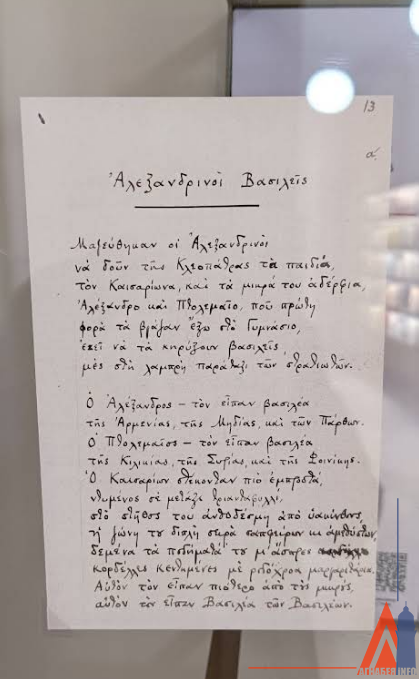 13
α΄
Ἀλεξανδρινοὶ Βασιλεῖς
Μαζεύθηκαν οἱ Ἀλεξανδρινοὶ
νὰ δοῦν τῆς Κλεοπάτρας τὰ παιδιά,
τὸν Καισαρίωνα, καὶ τὰ μικρά του ἀδέρφια,
Ἀλέξανδρο καὶ Πτολεμαῖο, ποῦ πρώτη
φορὰ τὰ βγάζαν ἔξω στὸ Γυμνάσιο,
ἐκεῖ νὰ τὰ κηρύξουν βασιλεῖς,
μὲς στὴ λαμπρὴ παράταξι τῶν στρατιωτῶν.
Ὁ Ἀλέξανδρος – τὸν εἶπαν βασιλέα
τῆς Ἀρμενίας, τῆς Μηδίας, καὶ τῶν Πάρθων.
Ὁ Πτολεμαῖος – τὸν εἶπαν βασιλέα
τῆς Κιλικίας, τῆς Συρίας, καὶ τῆς Φοινίκης.
Ὁ Καισαρίων στέκονταν πιὸ ἐμπροστά,
ντυμένος σὲ μετάξι τριανταφυλλί,
στὸ στῆθος του ἀνθοδέσμη ἀπὸ ὑακίνθους,
ἡ ζώνη του διπλὴ σειρὰ σαπφείρων κι ἀμεθύστων,
δεμένα τὰ ποδήματά του μ' ἄσπρες
κορδέλλες κεντημένες μὲ ροδόχροα μαργαριτάρια.
Αὐτὸν τὸν εἶπαν πιότερο ἀπὸ τοὺς μικρούς,
αὐτὸν τὸν εἶπαν Βασιλέα τῶν Βασιλέων.
ATHAGER.INFO